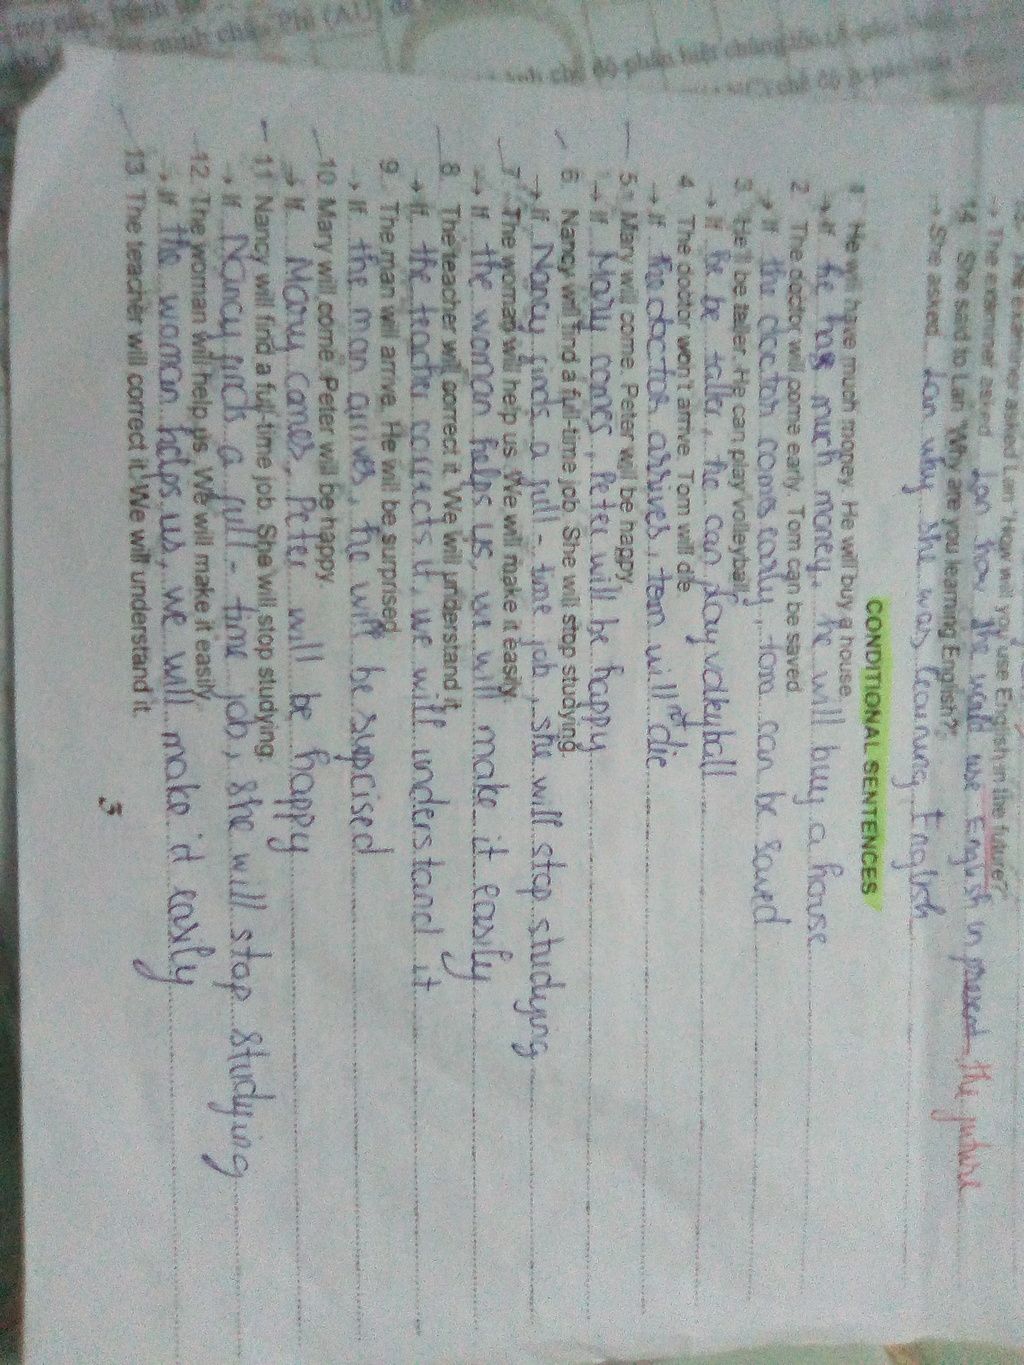 The examiner asked Lan "How will you use English in the future?"
→ The examiner asked Lan how she would use English in present the future
14. She said to Lan "Why are you learning English?"
→ She asked Lan why she was learning English
CONDITIONAL SENTENCES
1. He will have much money. He will buy a house.
→ If he has much money, he will buy a house
2. The doctor will come early. Tom can be saved
→ If the doctor comes early, tom can be saved
3. He'll be taller. He can play volleyball.
→ If he be taller, he can play voleyball
4. The doctor won't arrive. Tom will die
→ If the doctor arrives, tom will n't die
5. Mary will come. Peter will be happy
→ If Mary comes, Peter will be happy
6. Nancy will find a full-time job. She will stop studying.
→ If Nancy finds a full-time job, she will stop studying
7. The woman will help us. We will make it easily.
→ If the woman helps us, we will make it easily
8. The teacher will correct it. We will understand it.
→ If the teacher corrects it, we will understand it
9. The man will arrive. He will be surprised
→ If the man arrives, he will be suprised
10. Mary will come. Peter will be happy
→ If Mary comes, Peter will be happy
11. Nancy will find a full-time job. She will stop studying.
→ If Nancy finds a full-time job, she will stop studying
12. The woman will help us. We will make it easily.
→ If the woman helps us, we will make it easily
13. The teacher will correct it. We will understand it.
3